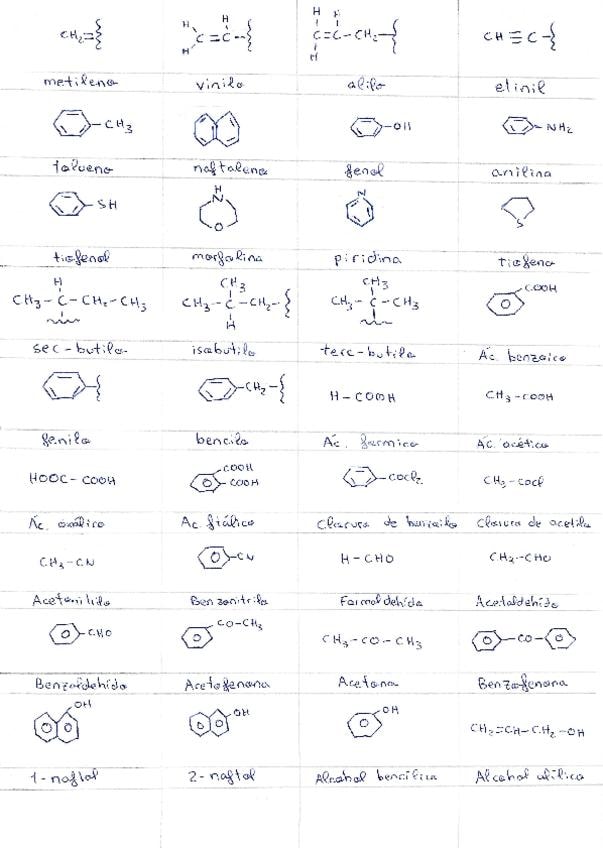 CH₂=
H
H
C=C
H
H H
C=C-CH₂-
H
CH≡C-
metileno vinilo alilo etinil
-CH₃ -OH -NH₂
tolueno naftaleno fenol anilina
-SH H N O N S
tiofenol morfolina piridina tiofeno
H
CH₃-C-CH₂-CH₃
CH₃
CH₃-C-CH₂-
H
CH₃
CH₃-C-CH₃
COOH
sec-butilo isobutilo terc-butilo Ác. benzoico
-CH₂- H-COOH CH₃-COOH
fenilo bencilo Ác. formico Ác. acético
HOOC-COOH COOH -COOH -COCl₂ CH₃-COCl
Ác. oxálico Ac. ftálico Cloruro de benzoilo Cloruro de acetilo
CH₃-CN -CN H-CHO CH₂-CHO
Acetonitrilo Benzonitrilo Formaldehido Acetaldehido
-CHO CO-CH₃ CH₃-CO-CH₃ -CO-
Benzaldehido Acetofenona Acetona Benzofenona
OH OH OH CH₂=CH-CH₂-OH
1-naftol 2-naftol Alcohol bencílico Alcohol alílico